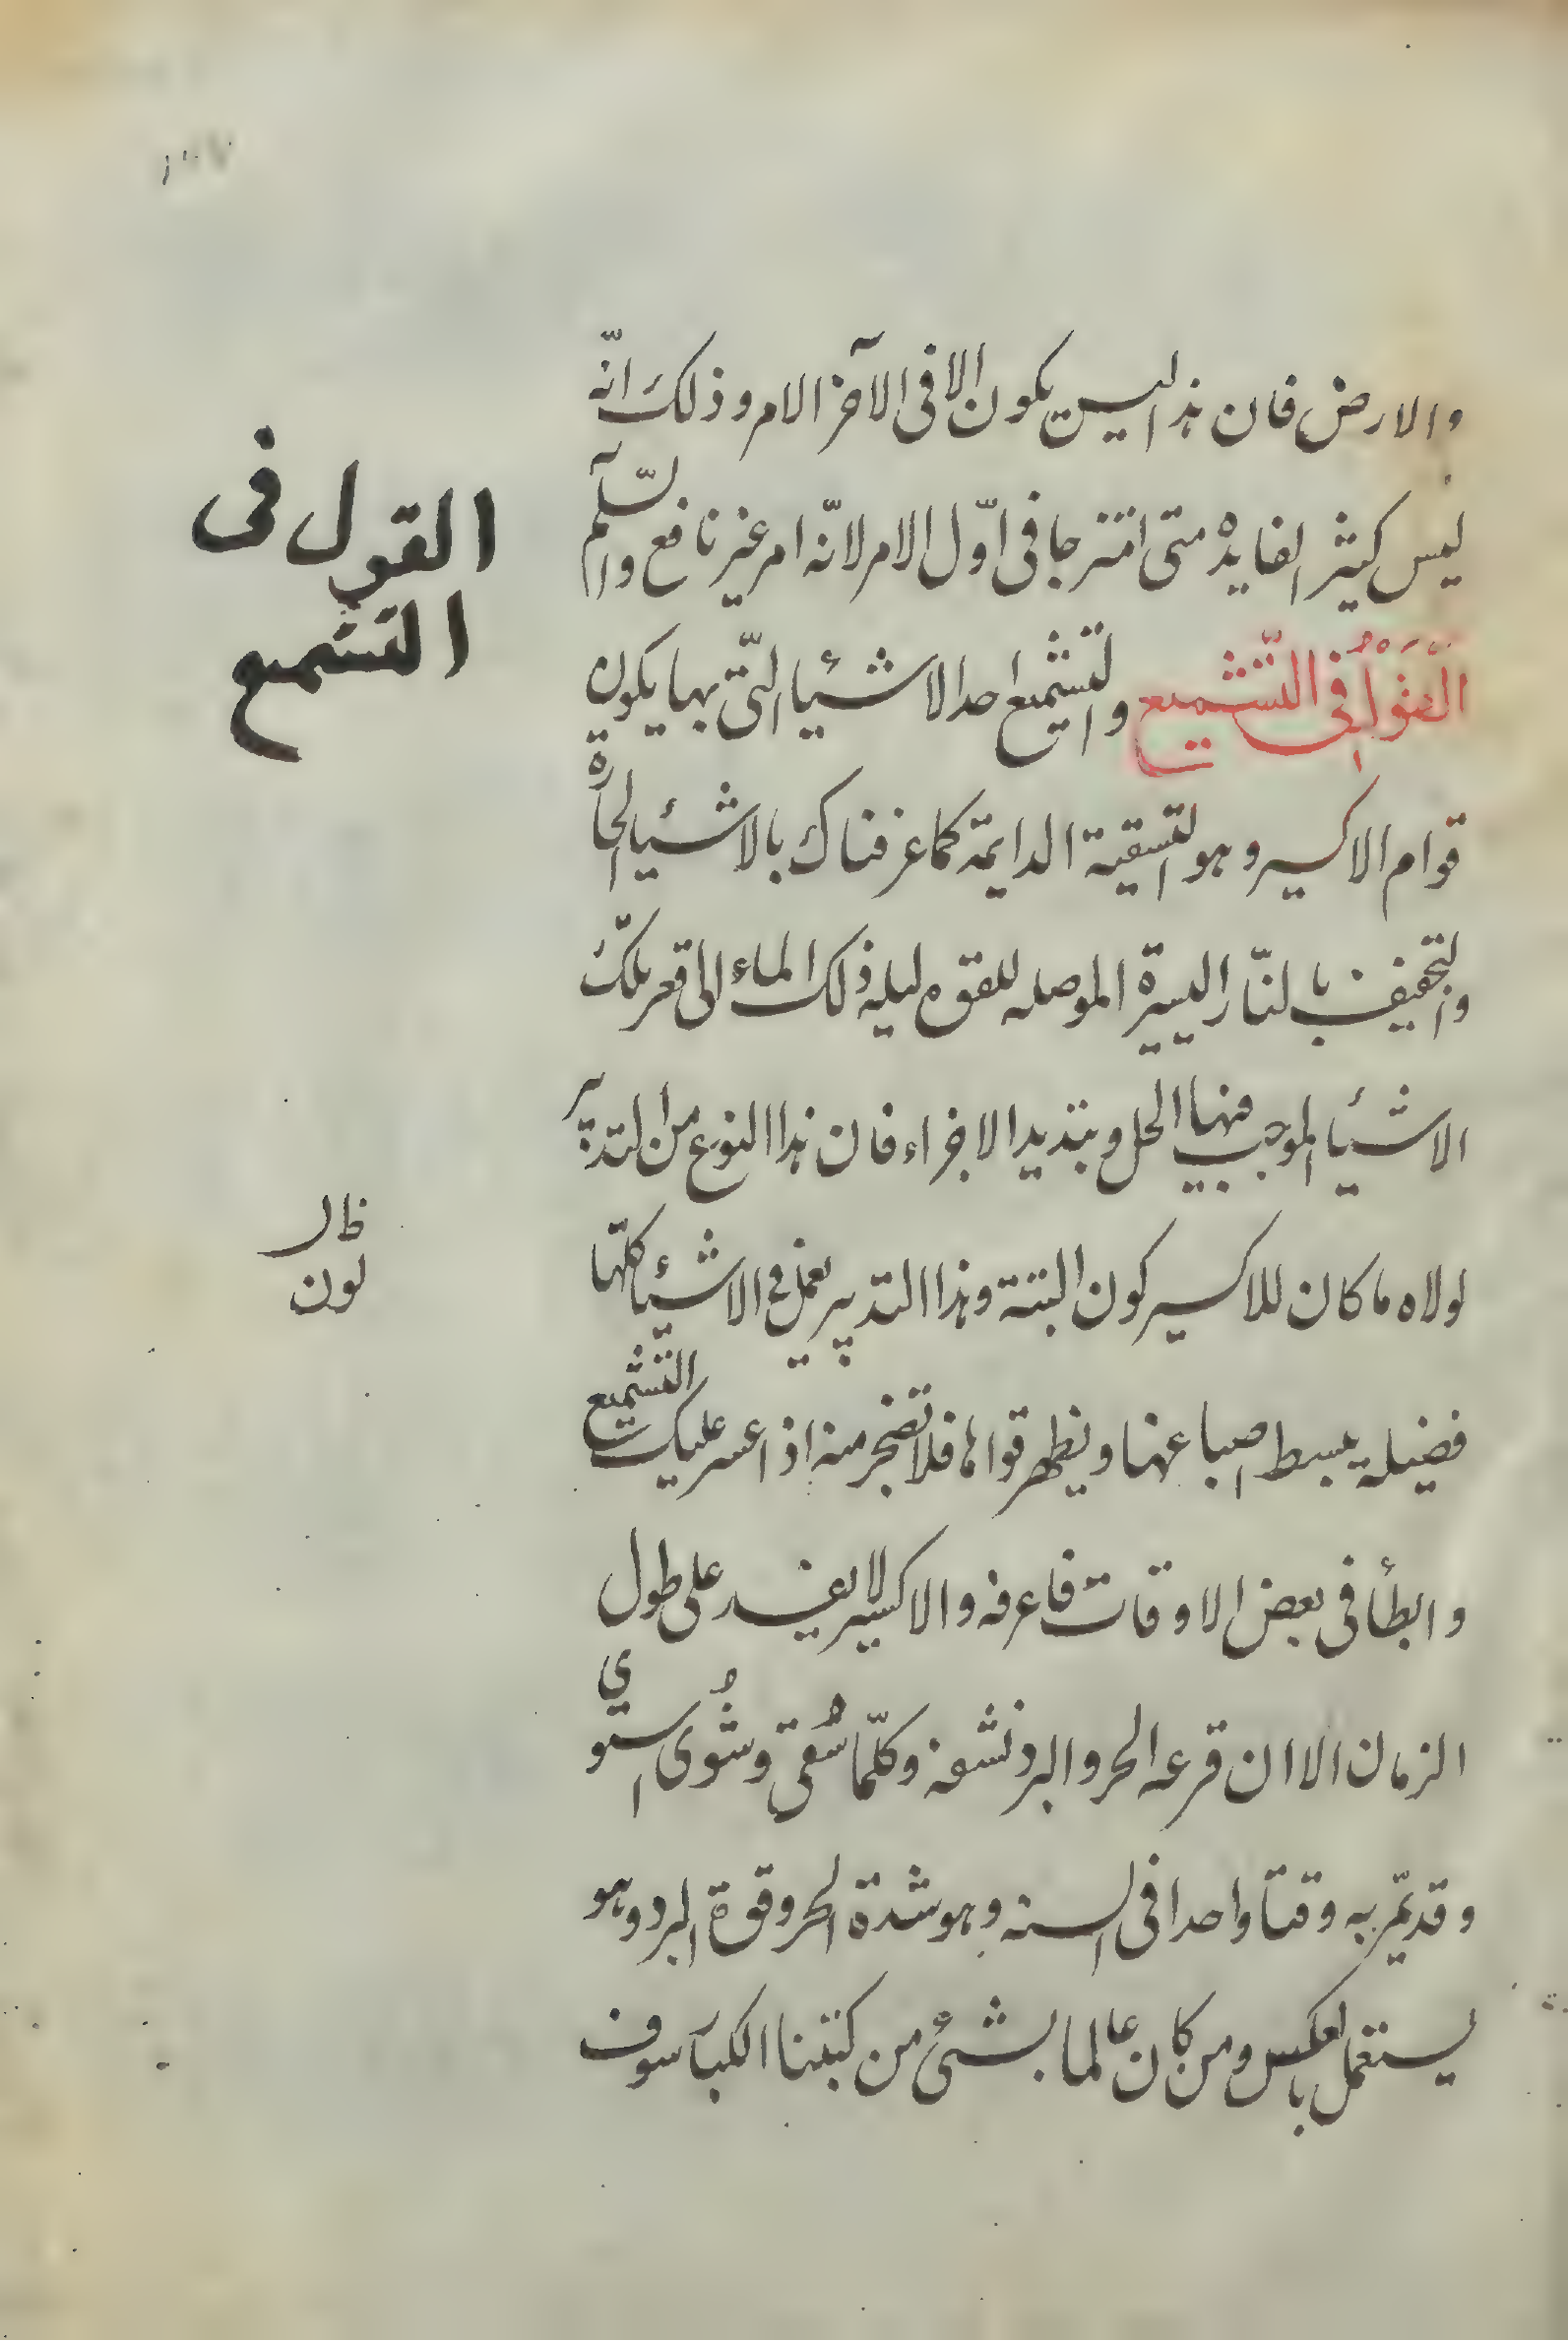 والارض فان هذا ليس يكون الا فى الآخر الامر وذلك انّه
ليس كثير الفايدة متى امتزجا فى اوّل الامر لانّه امر غير نافع والسّلم
القول فى التّشميع والتّشميع احد الاشيئا التّى بها يكون
قوام الاكسير وهو التسقية الدايمة كما عرفناك بالاشيئا الحارة
والتجفيف بالنّار اليسيرة الموصله للقوه ليله ذلك الماء الى قعر تلك
الاشيئا الموجب فيها الحل وتبديد الاجزاء فان هذا النوع من التدبير
لولاه ما كان للاكسير كون البتة وهذا التدبير يعمل فى الاشيئا كلّها
فضيلة يبسط اصباغها ويظهر قواها فلا تضجر منه اذا عسر عليك التّشميع
وابطأ فى بعض الاوقات فاعرفه والاكسير لا يفسد على طول
الزمان الا ان قرعه الحر والبرد نشفه وكلّما سُقى وشُوى استوي
وقد يمّر به وقتا واحدا فى السنه وهو شدة الحر وقوة البرد وهو
يستعمل بالعكس ومن كان عالما بشئ من كتبنا الكبار سوف
القول فى
التشميع
ظ ال
لون